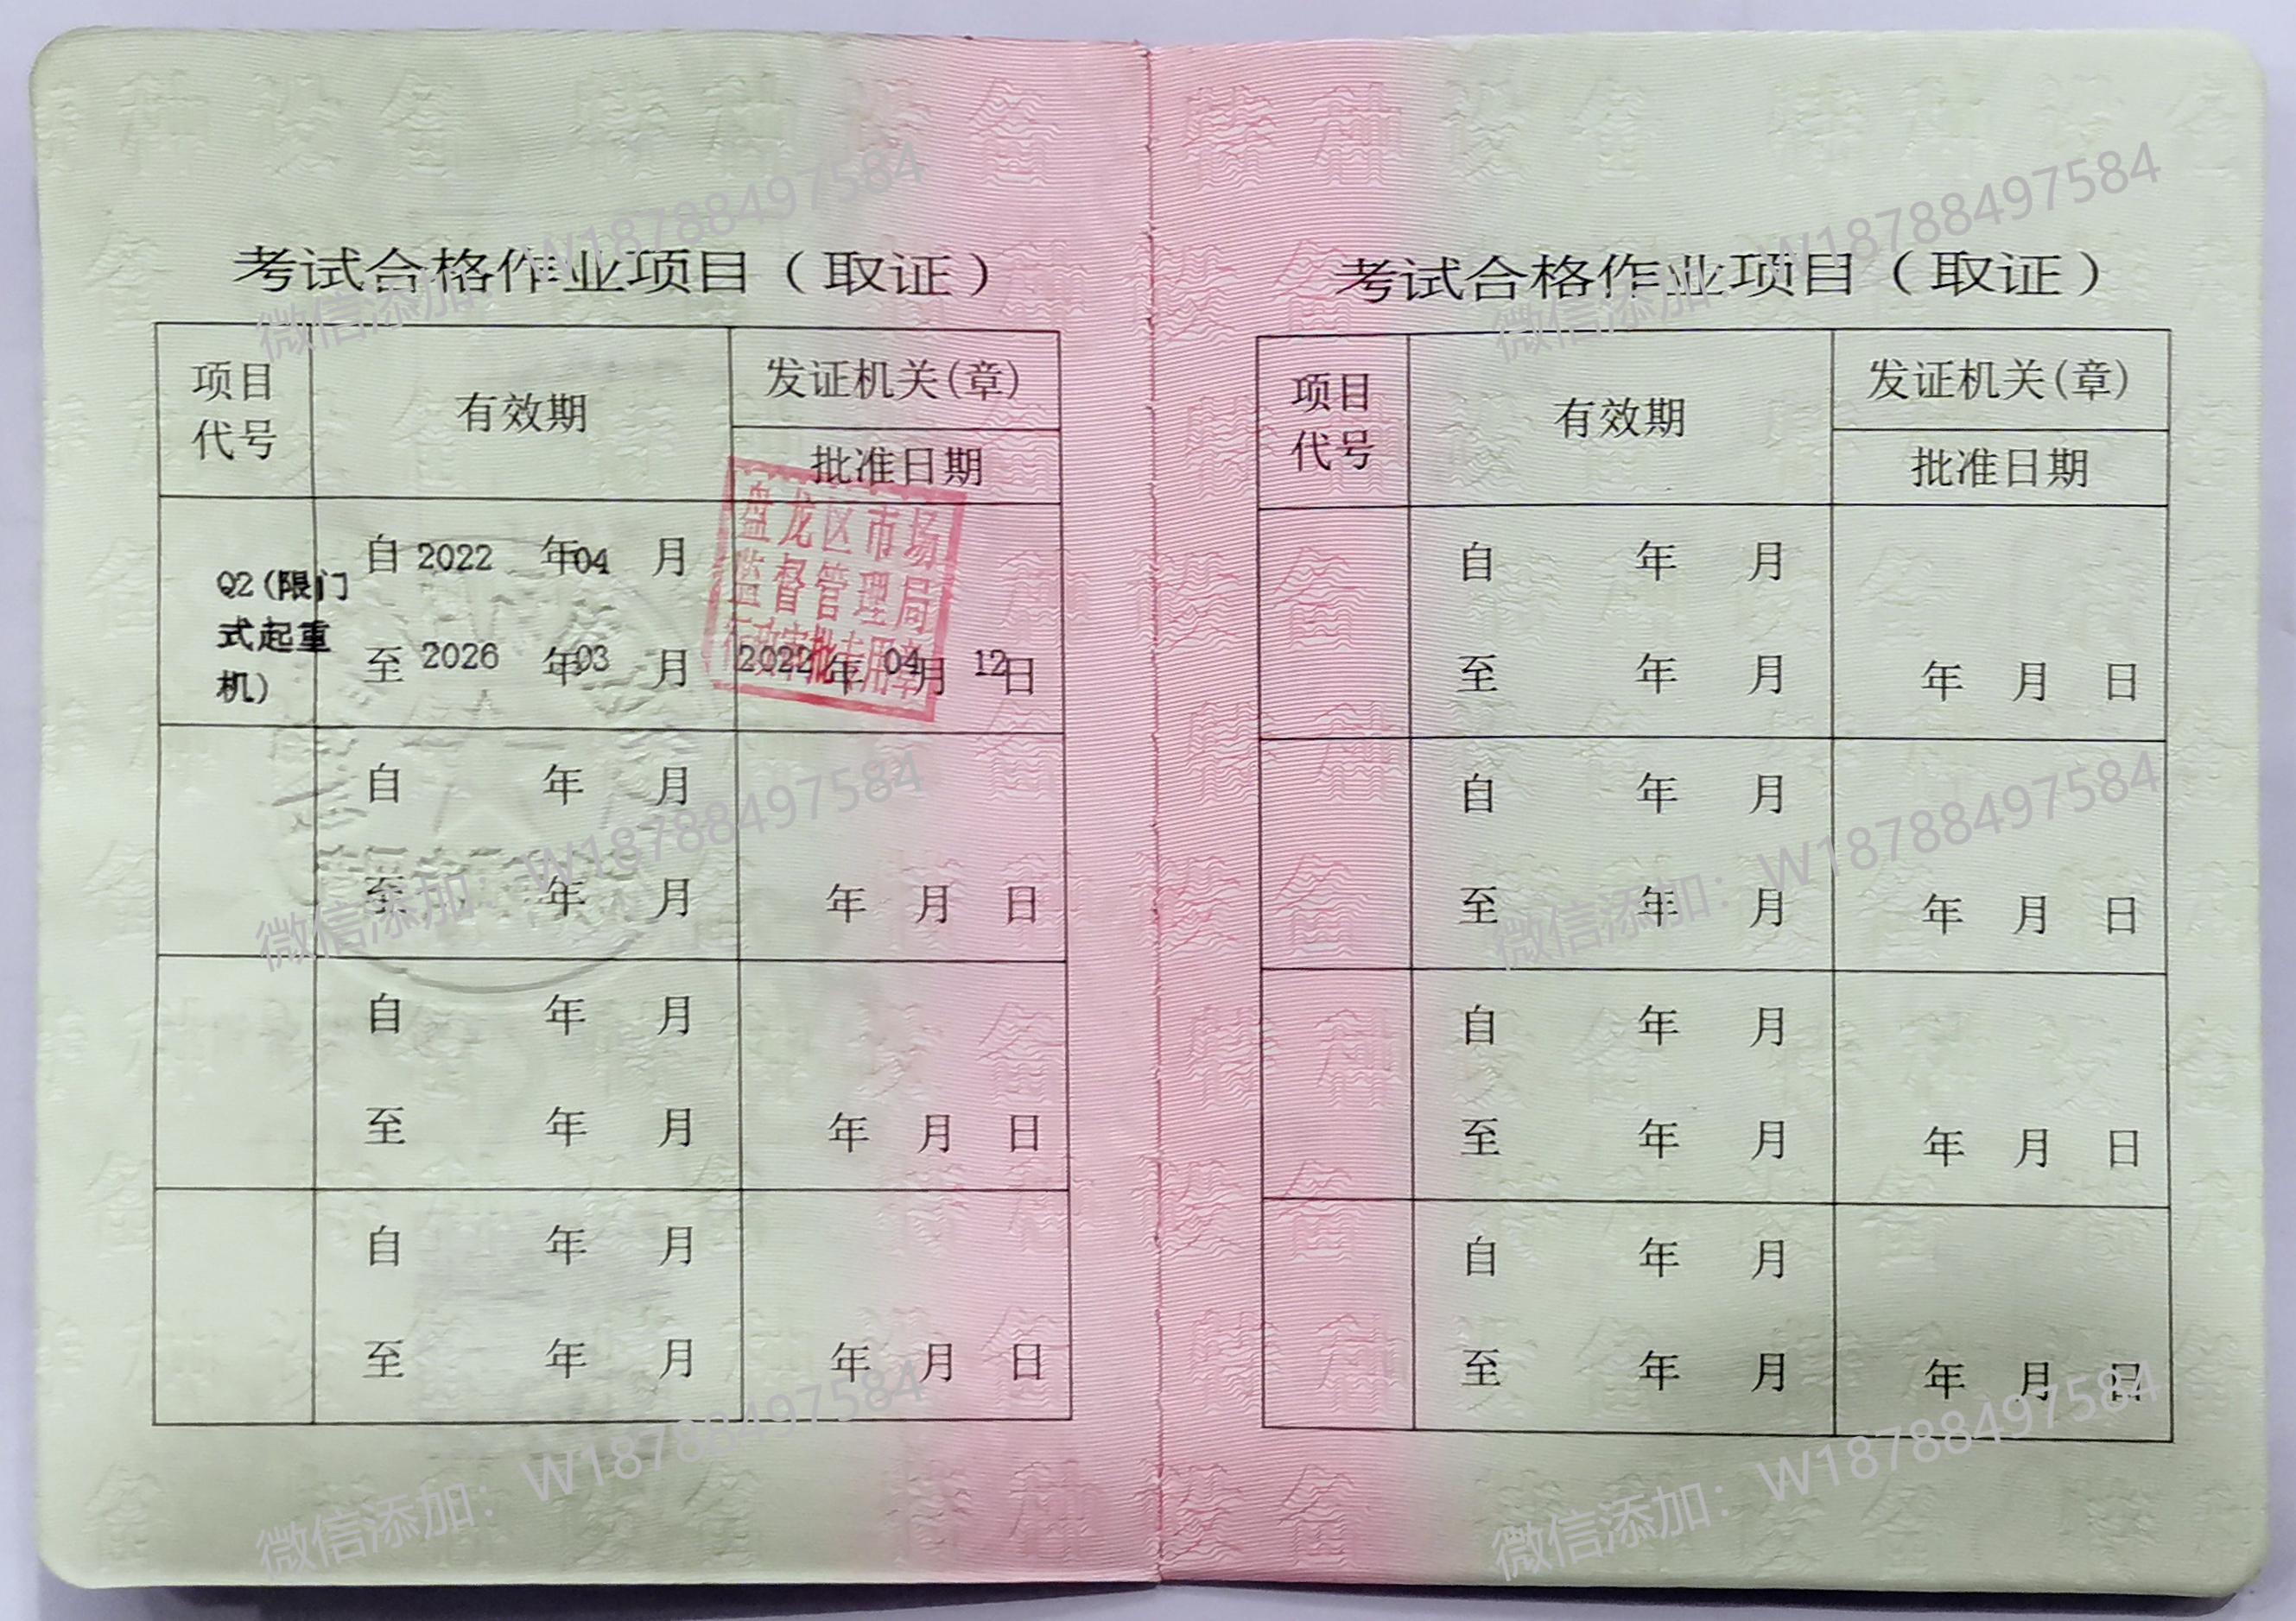 考试合格作业项目（取证）
项目代号
有效期
发证机关(章)
批准日期
Q2(限门
式起重
机)
自 2022 年 04 月
至 2026 年 03 月
盘龙区市场
监督管理局
行政审批专用章
2022 年 04 月 12 日
自 年 月
至 年 月
年 月 日
自 年 月
至 年 月
年 月 日
自 年 月
至 年 月
年 月 日
考试合格作业项目（取证）
项目代号
有效期
发证机关(章)
批准日期
自 年 月
至 年 月
年 月 日
自 年 月
至 年 月
年 月 日
自 年 月
至 年 月
年 月 日
自 年 月
至 年 月
年 月 日
微信添加：W18788497584
微信添加：W18788497584
微信添加：W18788497584
微信添加：W18788497584
微信添加：W18788497584
微信添加：W18788497584